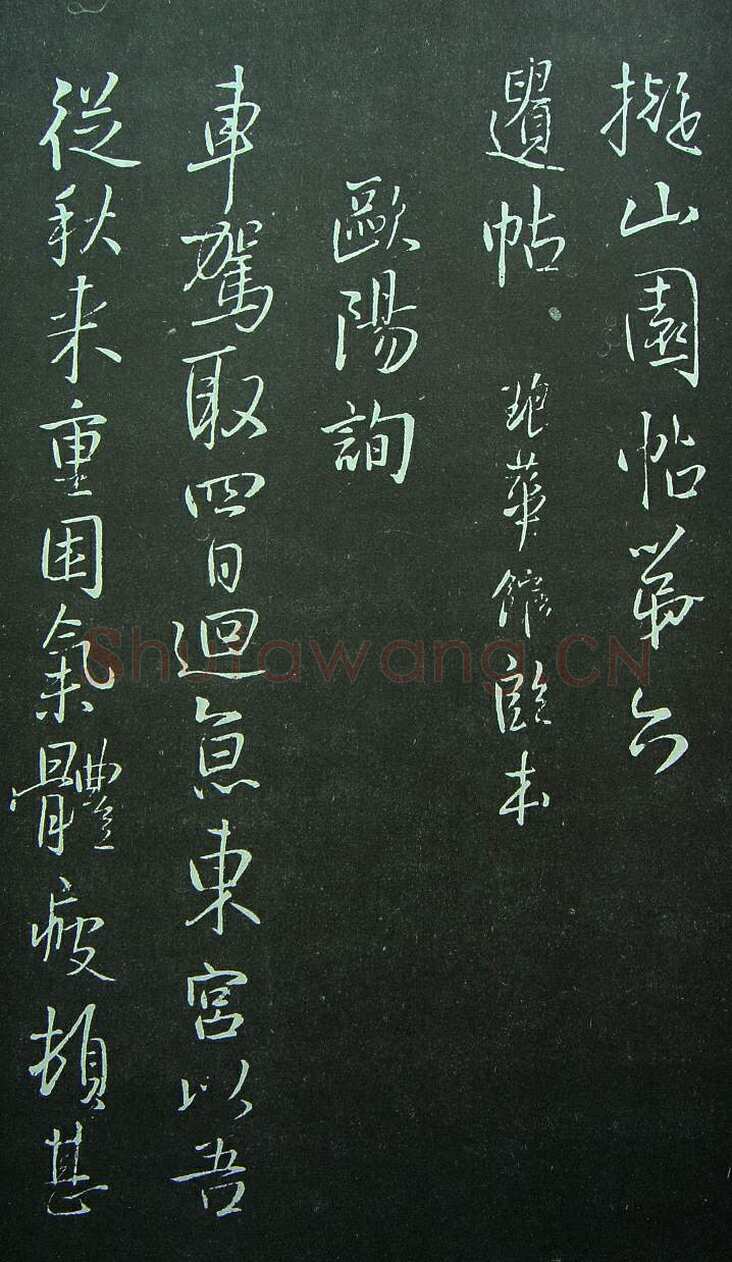 擬山園帖第六
遺帖 琅華館臨本
歐陽詢
車駕取四日迴京東宮以吾
從秋来重困氣體疲頓甚
Shufawang.CN